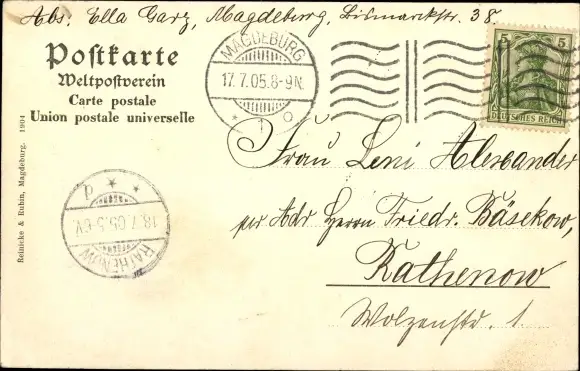 Abs: Ella Garz, Magdeburg, Bismarckstr. 38.
Postkarte
Weltpostverein
Carte postale
Union postale universelle
MAGDEBURG
17.7.05.8-9N.
* 1 o
5 5
DEUTSCHES REICH
Frau Leni Alexander
per Adr Herrn Friedr. Bäsekow,
Rathenow
Wolzenstr. 1.
RATHENOW
18.7.05.5-6V.
P * *
Reinicke & Rubin, Magdeburg. 1904